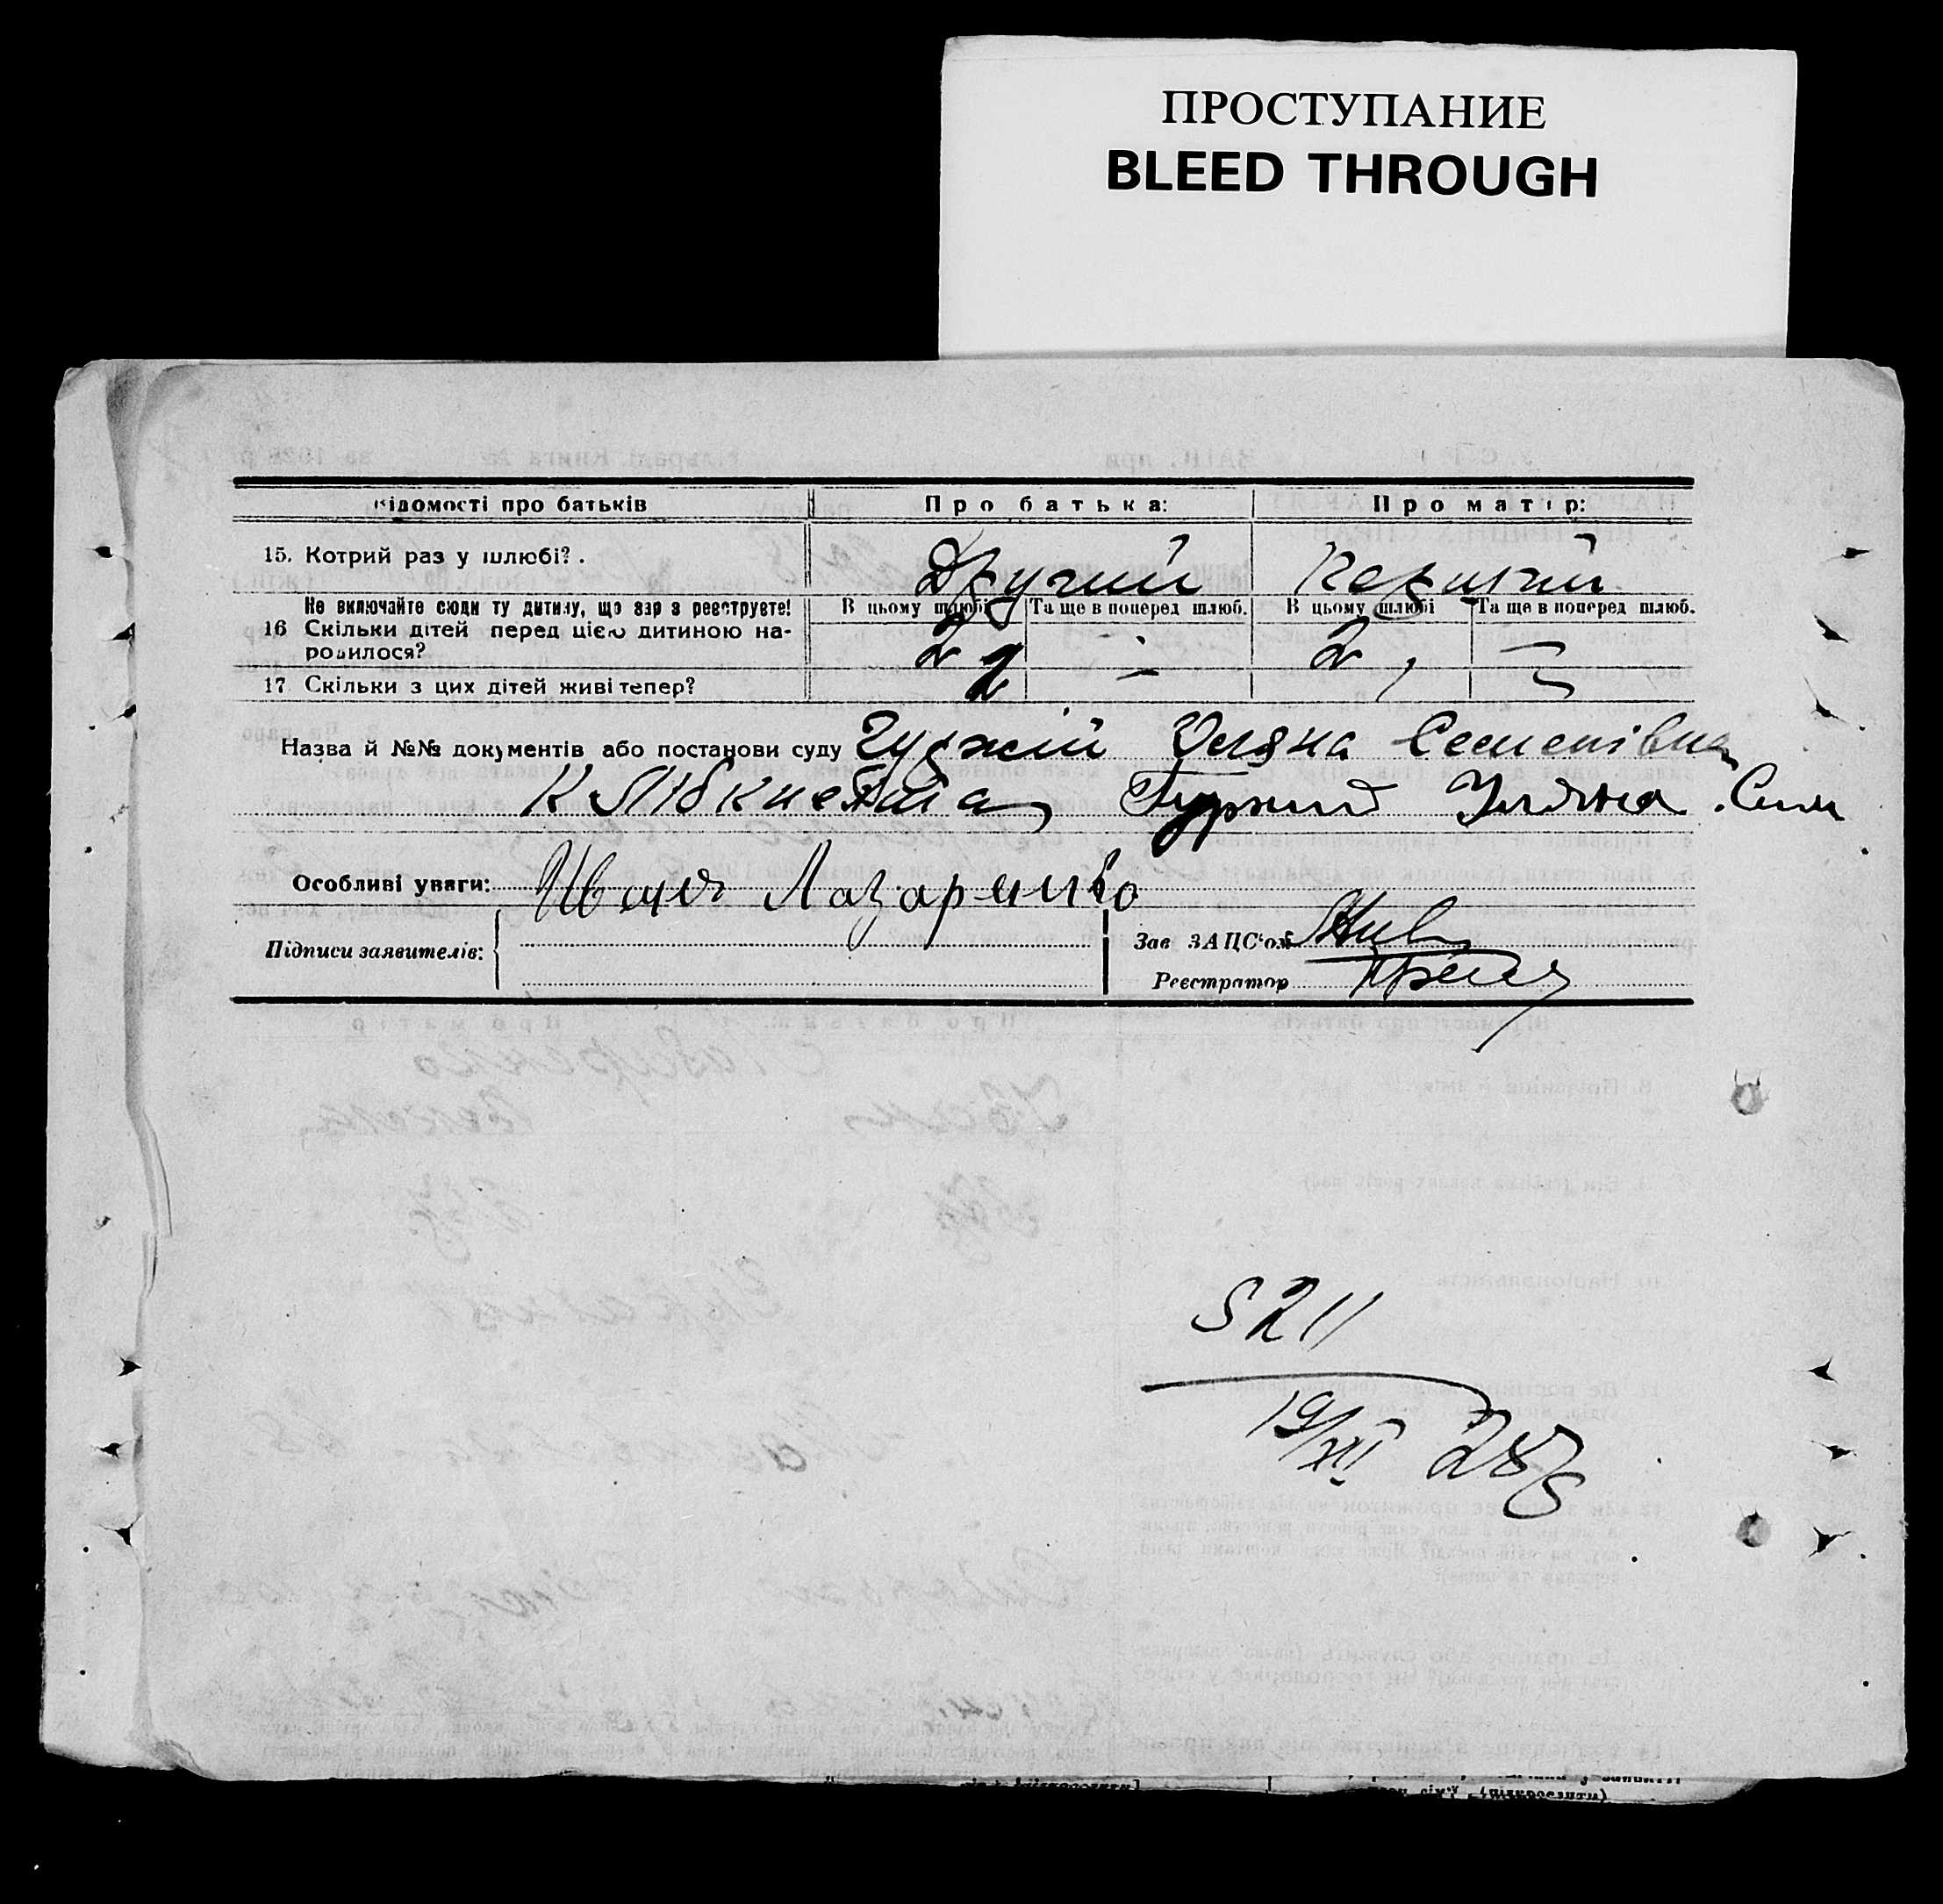 ПРОСТУПАНИЕ
BLEED THROUGH
відомості про батьків Про батька: Про матір:
15. Котрий раз у шлюбі? . Другий Перший
Не включайте сюди ту дитину, що зар з реєструєте! В цьому шлюбі Та ще в поперед шлюб. В цьому шлюбі Та ще в поперед шлюб.
16 Скільки дітей перед цією дитиною на-
родилося? 2 — 2 —
17. Скільки з цих дітей живі тепер? 2
Назва й №№ документів або постанови суду Гуржій Уляна Семенівна
К Лібкнехта Гуржий Уляна Сем
Особливі уваги: Иван Лазаренко
Підписи заявителів: Зав ЗАЦС'ом
Реєстратор
5211
19/XII 28 р